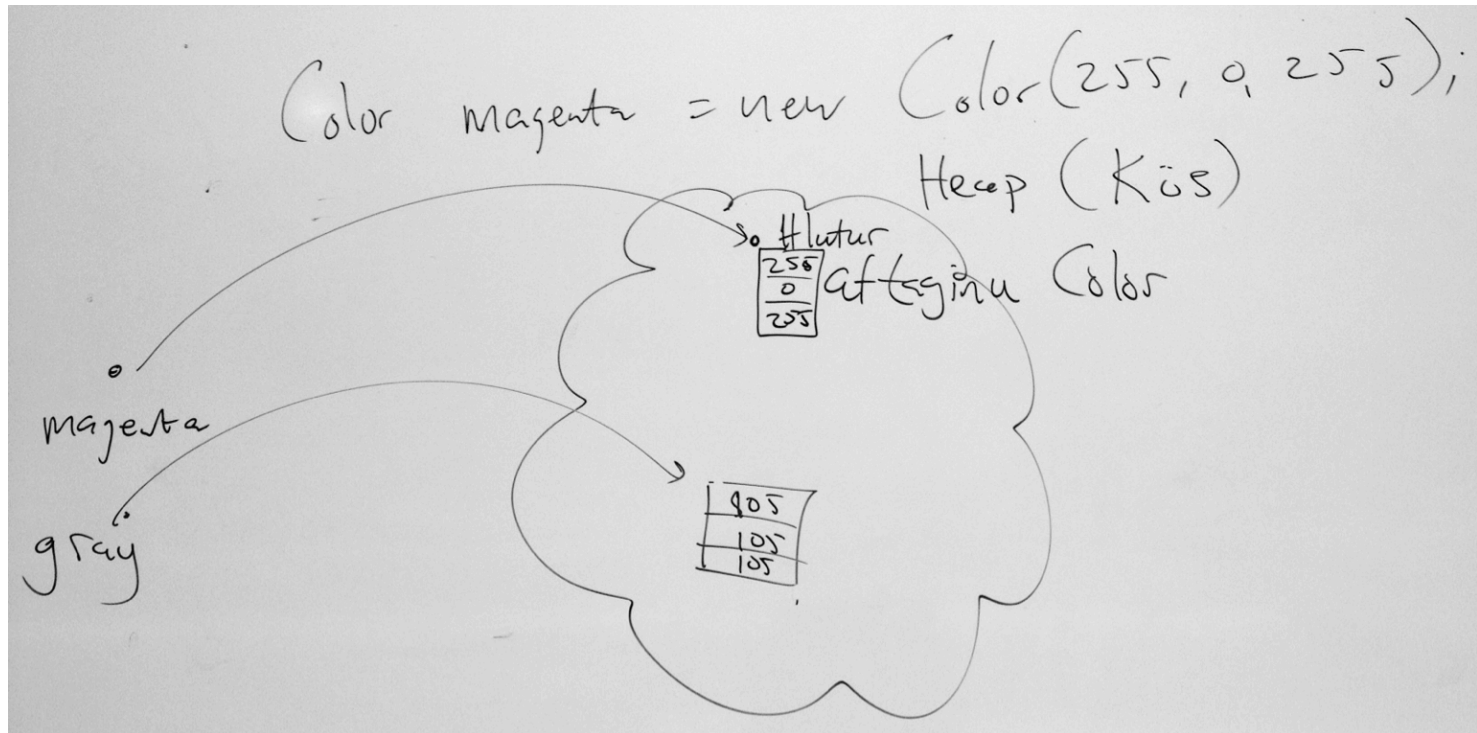 Color magenta = new Color(255, 0, 255);
Heap (Kös)
Hlutur
255
0
255
af taginu Color
magenta
gray
105
105
105